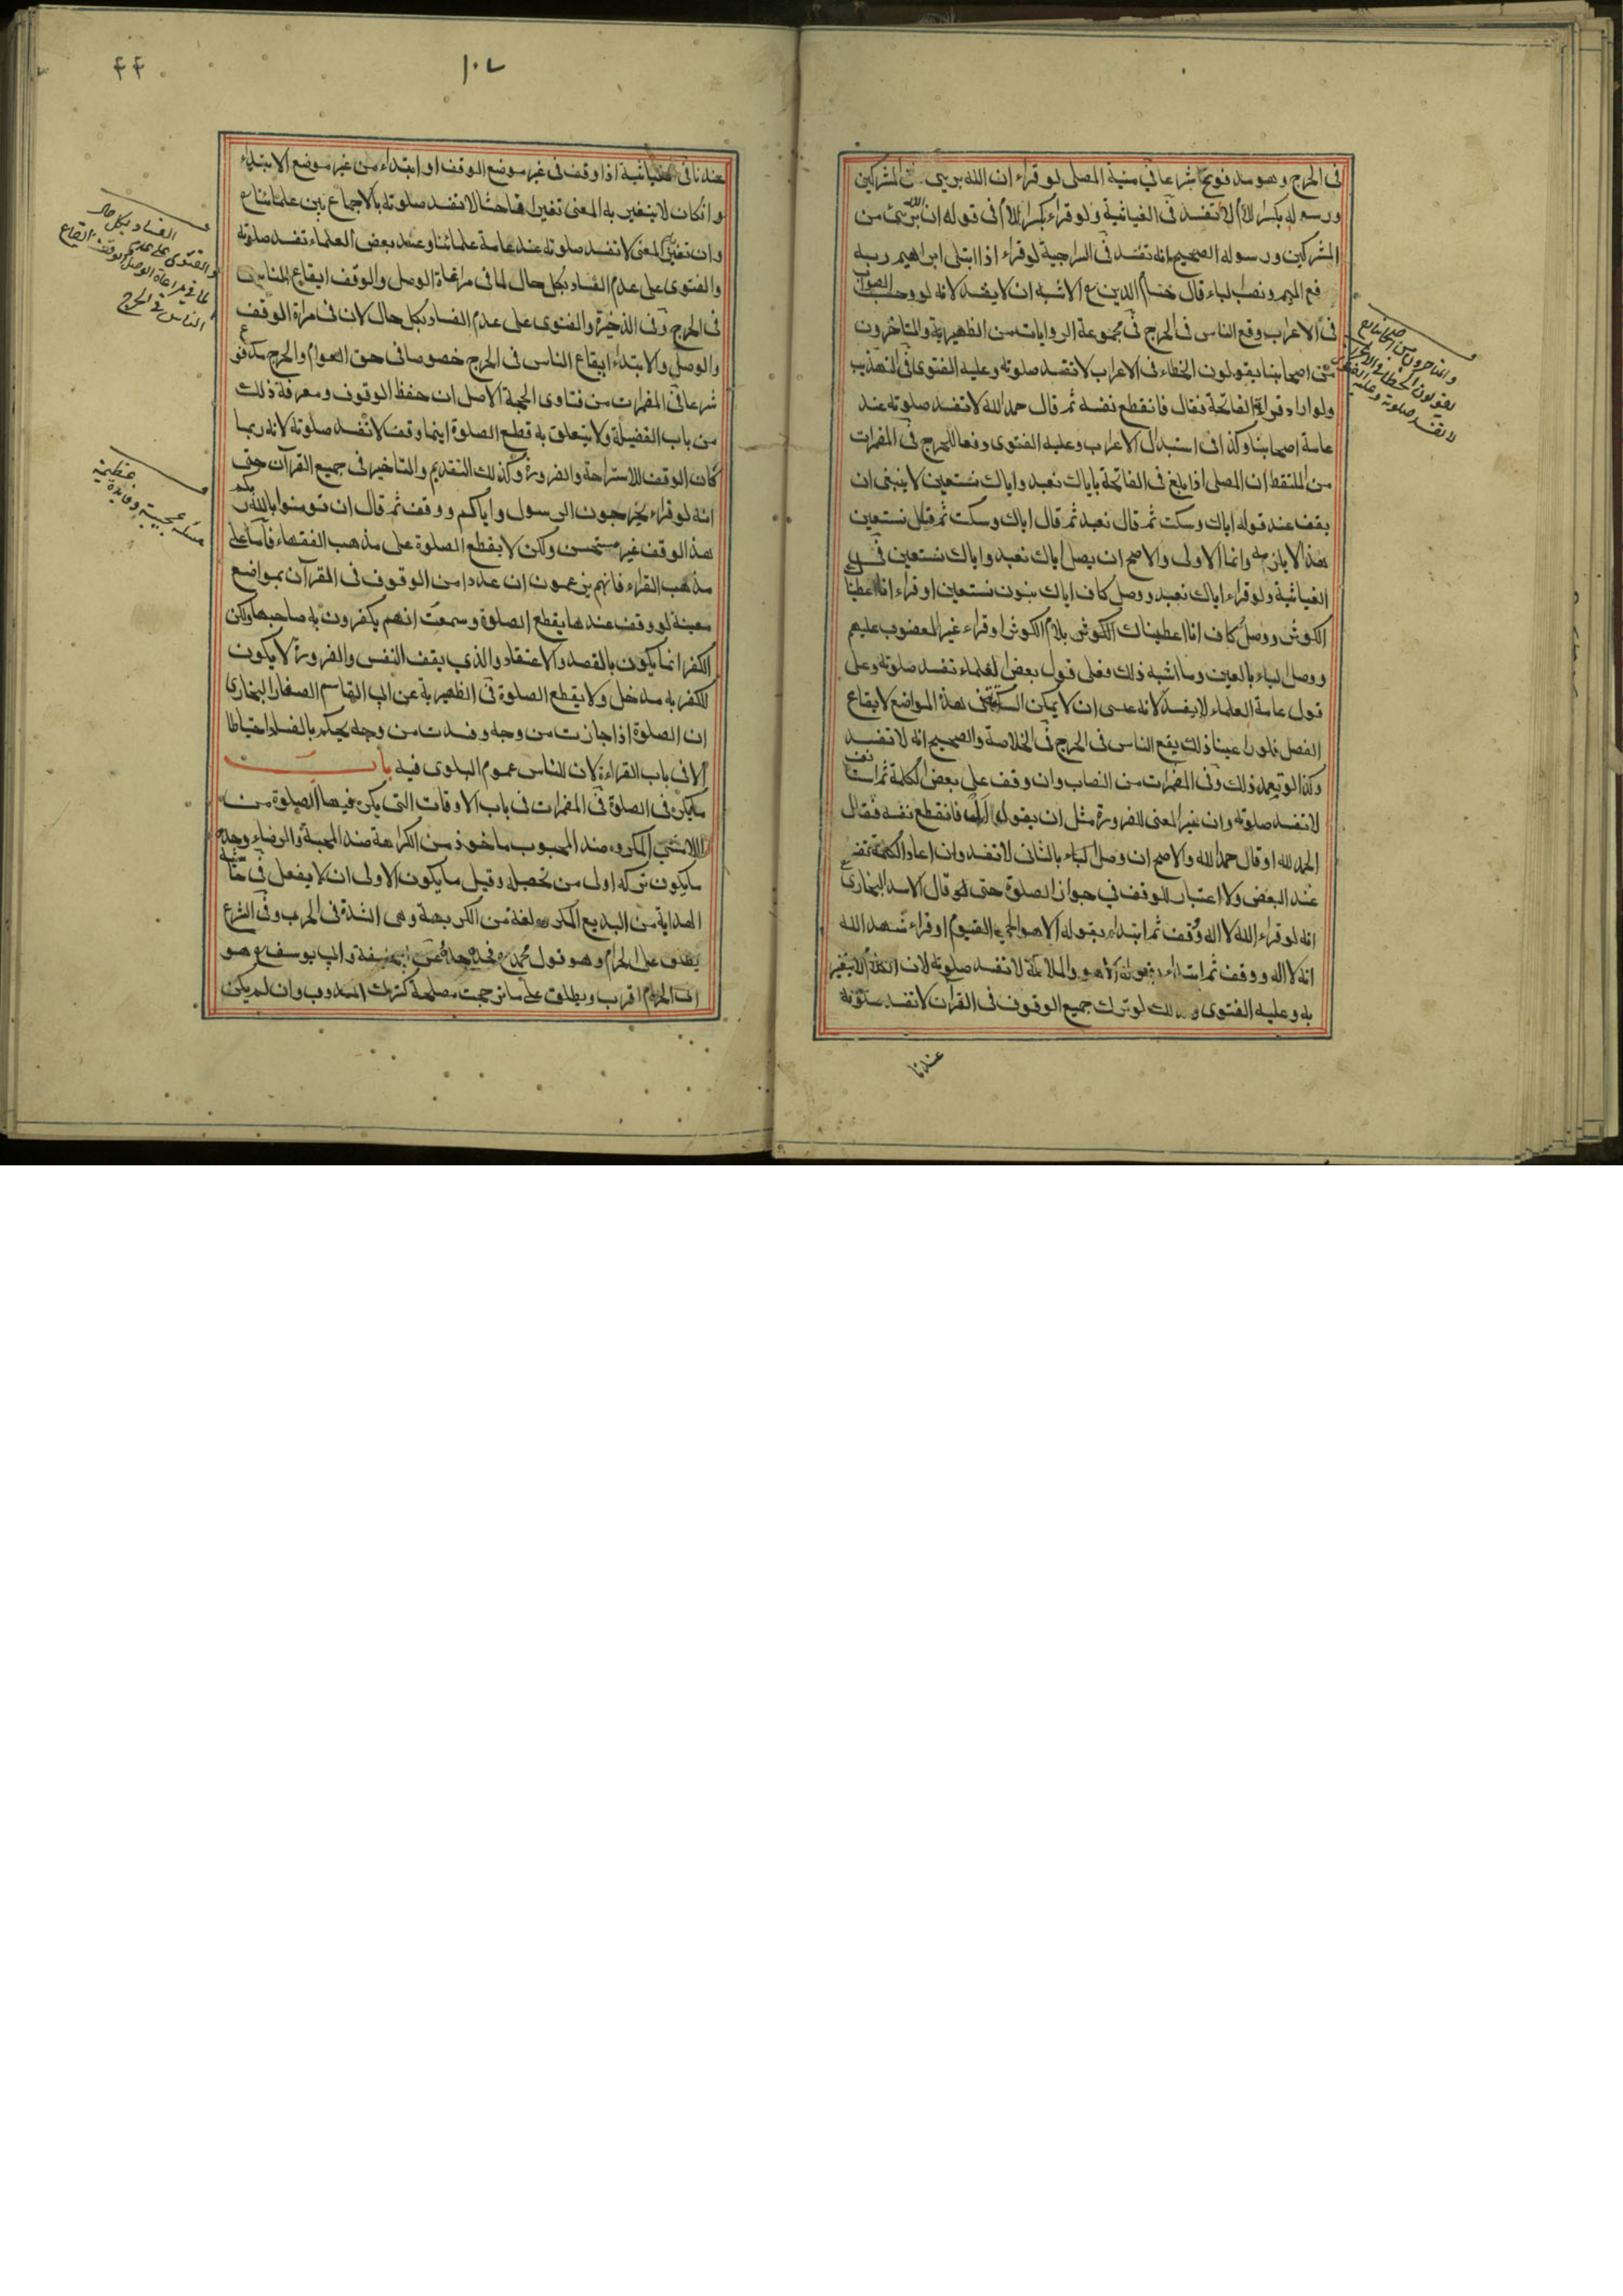 فى الحرج وهو مدفوع شرعا فى منية المصلى لو قراء ان الله برىء من المشركين
ورسوله بكسر اللام لا تفسد فى الغياثية ولو قراء بكسر اللام فى قوله ان الله برىء من
المشركين ورسوله الصحيح انه تفسد فى السراجية لو قراء اذا ابتلى ابراهيم ربه
فع الميم ونصب الباء قال حسام الدين الاشبه ان لا يفسد لانه لو وجب الصواب
فى الاعراب وقع الناس فى الحرج فى مجموعة الروايات من الظهيرية والمتاخرون
من اصحابنا يقولون الخطاء فى الاعراب لا تفسد صلوته وعليه الفتوى فى التهذيب
ولو اراد قراءة الفاتحة فقال فانقطع نفسه ثم قال حمد الله لا تفسد صلوته عند
عامة اصحابنا وكذا فى استبدال الاعراب وعليه الفتوى دفعا للحرج فى المضمرات
من الملتقط ان المصلى اذا بلغ فى الفاتحة باياك نعبد واياك نستعين لا ينبغى ان
يقف عند قوله اياك وسكت ثم قال نعبد ثم قال اياك وسكت ثم قال نستعين
هذا لا يلزمه وانما الاولى والاصح ان يصل اياك نعبد واياك نستعين فى
الغياثية ولو قراء اياك نعبد ووصل كاف اياك بنون نستعين او قراء انا اعطينا
الكوثر ووصل كاف انا اعطيناك الكوثر بلام الكوثر او قراء غير المغضوب عليهم
ووصل الباء بالعين وما اشبه ذلك فعلى قول بعض العلماء تفسد صلوته وعلى
قول عامة العلماء لا يفسد لانه عسى ان لا يمكن السكتة فى هذه المواضع لايقاع
الفصل فلو راعينا ذلك يقع الناس فى الحرج فى الخلاصة والصحيح انه لا تفسد
وكذا لو تعمد ذلك وفى المضمرات من النصاب وان وقف على بعض الكلمة ثم
لا تفسد صلوته وان غير المعنى للضرورة مثل ان يقول ال فانقطع نفسه فقال
الحمد لله او قال حمد لله والاصح ان وصل الباء بالثانى لا تفسد وان اعاد الكلمة تفسد
عند البعض ولا اعتبار للوقف فى جواز الصلوة حتى لو قال الاسد البخارى
انه لو قراء الله لا اله ووقف ثم ابتداء بقوله الا هو الحى القيوم او قراء شهد الله
انه لا اله ووقف ثم ابتداء بقوله الا هو والملائكة لا تفسد صلوته لان المعنى لا يتغير
به وعليه الفتوى وكذلك لو ترك جميع الوقوف فى القرآن لا تفسد صلوته
عندنا
والمتاخرون من اصحابنا
يقولون الخطاء فى الاعراب
لا تفسد صلوته وعليه الفتوى
١٠٧
۴۴
عندنا فى الغياثية اذا وقف فى غير موضع الوقف او ابتداء من غير موضع الابتداء
وانكان لا يتغير به المعنى تغيرا فاحشا لا تفسد صلوته بالاجماع بين علمائنا
وان تغير المعنى لا تفسد صلوته عند عامة علمائنا وعند بعض العلماء تفسد صلوته
والفتوى على عدم الفساد بكل حال لما فى مراعاة الوصل والوقف ايقاع الناس
فى الحرج وفى الذخيرة والفتوى على عدم الفساد بكل حال لان فى مراة الوقف
والوصل والابتداء ايقاع الناس فى الحرج خصوصا فى حق العوام والحرج مدفوع
شرعا فى المضمرات من فتاوى الحجة الاصل ان حفظ الوقوف ومعرفة ذلك
من باب الفضيلة ولا يتعلق به قطع الصلوة اينما وقف لا تفسد صلوته لانه ربما
كان الوقف للاستراحة والضرورة وكذلك التقديم والتاخير فى جميع القرآن حتى
انه لو قراء يخرجون الرسول واياكم ووقف ثم قال ان تومنوا بالله ربكم
هذا الوقف غير مستحسن ولكن لا يقطع الصلوة على مذهب الفقهاء فاما على
مذهب القراء فانهم يزعمون ان عددا من الوقوف فى القرآن بمواضع
معينة لو وقف عندها يقطع الصلوة وسمعت انهم يكفرون به صاحبها ولكن
الكفر انما يكون بالقصد والاعتقاد والذى يقف النفس والضرورة لا يكون
للكفر به مدخل ولا يقطع الصلوة فى الظهيرية عن ابى القاسم الصفار البخارى
ان الصلوة اذا جازت من وجه وفسدت من وجه يحكم بالفساد احتياطا
الا فى باب القراءة لان للناس عموم البلوى فيه باب
ما يكره فى الصلوة فى المضمرات فى باب الاوقات التى يكره فيها الصلوة من
المكروه ضد المحبوب ماخوذ من الكراهة ضد المحبة والرضاء وحده
ما يكون تركه اولى من تحصيله وقيل ما يكون الاولى ان لا يفعل فى حاشية
الهداية من البديع المكروه لغة من الكريهة وهى الشدة فى الحرب وفى الشرع
يطلق على الحرام وهو قول محمد وعن ابى حنيفة وابى يوسف هو
الى الحرام اقرب ويطلق على ما ترجحت مصلحة كترك المندوب وان لم يكن
والفتوى على عدم الفساد بكل حال
لما فى مراعاة الوصل والوقف ايقاع
الناس فى الحرج
مسئلة عجيبة وفائدة عظيمة